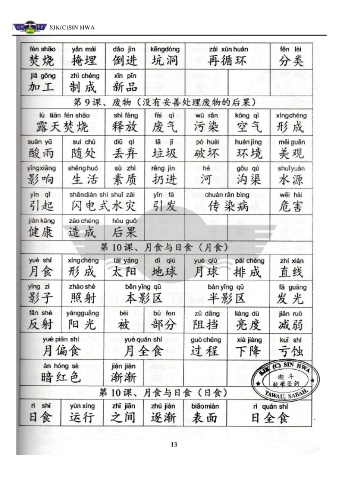 SJK(C)SIN HWA
fén shāo yǎn mái dào jìn kēngdòng zài xún huán fēn lèi
焚烧 掩埋 倒进 坑洞 再循环 分类
jiā gōng zhì chéng xīn pǐn
加工 制成 新品
第9课、废物（没有妥善处理废物的后果）
lù tiān fén shāo shì fàng fèi qì wū rǎn kōng qì xíngchéng
露天焚烧 释放 废气 污染 空气 形成
suān yǔ suí chù diū qì lā jī pò huài huán jìng měi guān
酸雨 随处 丢弃 垃圾 破坏 环境 美观
yǐngxiǎng shēng huó sù zhì rēng jìn hé gōu qú shuǐ yuán
影响 生活 素质 扔进 河 沟渠 水源
yǐn qǐ shǎndiàn shì shuǐ zāi yǐn fā chuán rǎn bìng wēi hài
引起 闪电式水灾 引发 传染病 危害
jiàn kāng zào chéng hòu guǒ
健康 造成 后果
第10课、月食与日食（月食）
yuè shí xíngchéng tài yáng dì qiú yuè qiú pái chéng zhí xiàn
月食 形成 太阳 地球 月球 排成 直线
yǐng zi zhào shè běn yǐng qū bàn yǐng qū fā guāng
影子 照射 本影区 半影区 发光
fǎn shè yángguāng bèi bù fen zǔ dǎng liàng dù jiǎn ruò
反射 阳光 被 部分 阻挡 亮度 减弱
yuè piān shí yuè quán shí guò chéng xià jiàng kuī shí
月偏食 月全食 过程 下降 亏蚀
àn hóng sè jiàn jiàn
暗红色 渐渐
SJK (C) SIN HWA
TAWAU, SABAH
第10课、月食与日食（日食）
rì shí yùn xíng zhī jiān zhú jiàn biǎomiàn rì quán shí
日食 运行 之间 逐渐 表面 日全食
13